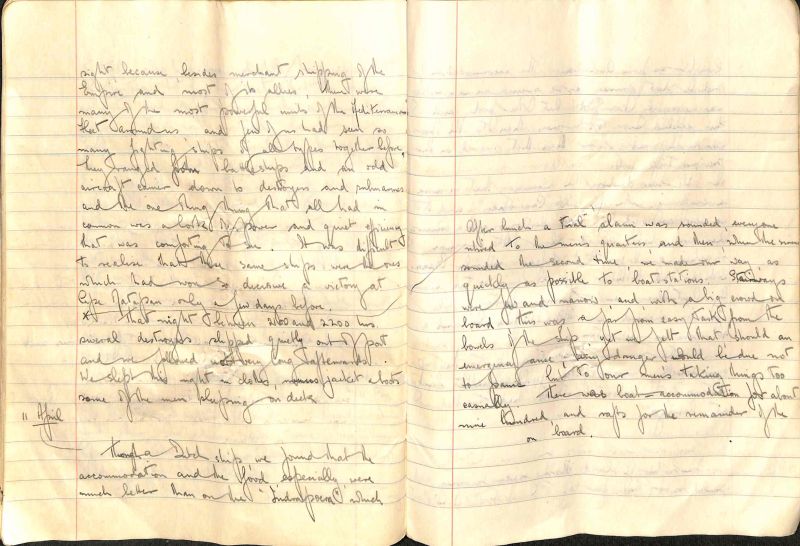 sight, because, besides merchant shipping of the
Empire and most of its allies, there were
many of the most powerful units of the Mediterranean
Fleet around us and few of us had seen so
many fighting ships of all types together before.
They ranged from battleships and an old
aircraft carrier down to destroyers and submarines
and the one thing that all had in
common was a look of power and quiet efficiency
that was comforting to see. It was difficult
to realise that these same ships were the ones
which had won so decisive a victory at
Cape Matapan only a few days before.
That night between 2100 and 2200 hrs.
several destroyers slipped quietly out of port
and we followed not very long afterwards.
We slept this night in clothes, minus jacket & boots
some of the men sleeping on deck.
11 April
though a Dutch ship, we found that the
accommodation and the food, especially, were
much better than on the "Indrapoera" which
After lunch a 'trial' alarm was sounded, everyone
retired to the men's quarters and then, when the
sounded the second time, we made our way as
quickly as possible to boat stations. Stairways
were few and narrow and with a big crowd on
board this was a far from easy task from the
bowels of the ship, yet we felt that should an
emergency arise any danger would be due not
to panic but to our men's taking things too
casually. There was boat-accommodation for about
nine hundred and rafts for the remainder of the
on board.